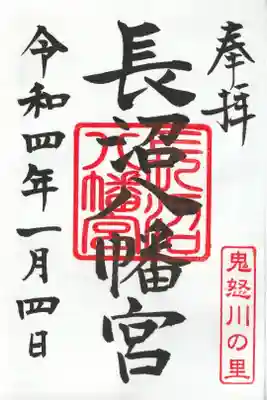 奉拝
長沼八幡宮
長沼八幡宮
鬼怒川の里
令和四年一月四日